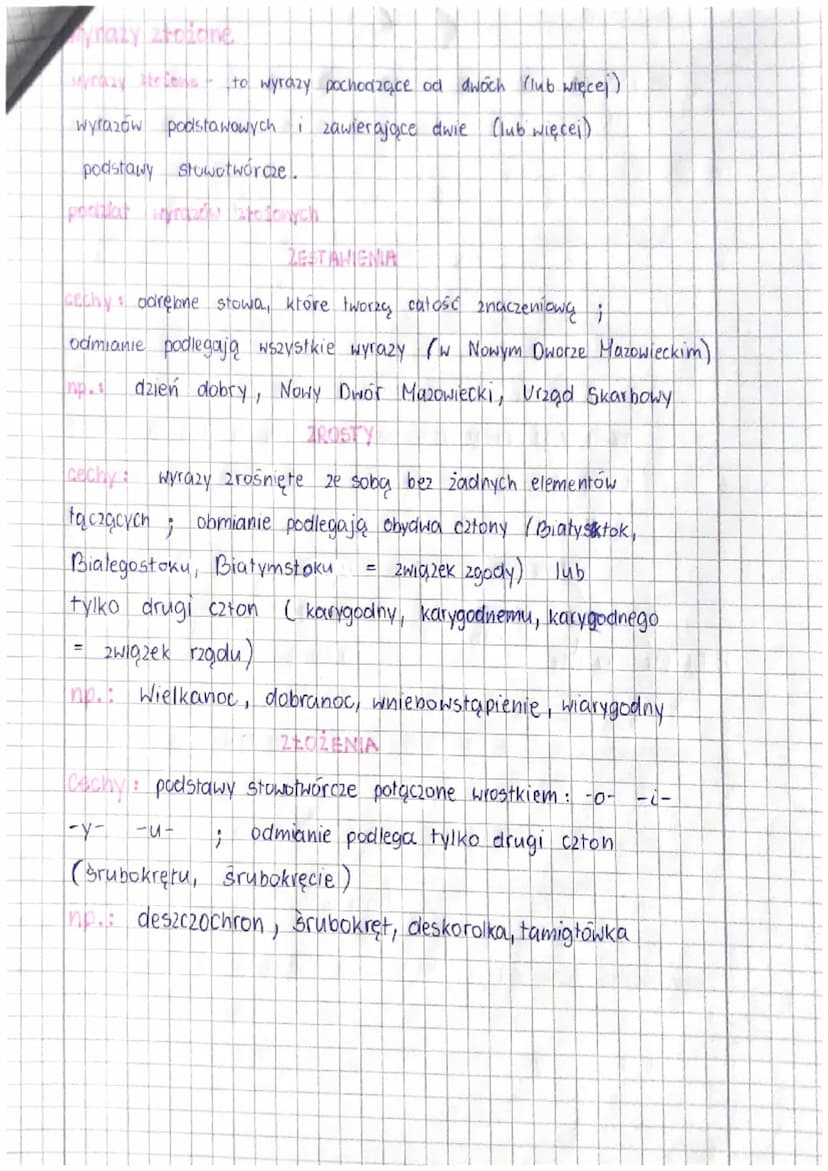 wyrazy złożone
wyrazy złożone - to wyrazy pochodzące od dwóch (lub więcej)
wyrazów podstawowych i zawierające dwie (lub więcej)
podstawy słowotwórcze.
podział wyrazów złożonych
ZESTAWIENIA
cechy: odrębne słowa, które tworzą całość znaczeniową ;
odmianie podlegają wszystkie wyrazy (w Nowym Dworze Mazowieckim)
np.: dzień dobry, Nowy Dwór Mazowiecki, Urząd Skarbowy
ZROSTY
cechy: wyrazy zrośnięte ze sobą bez żadnych elementów
łączących ; obmianie podlegają obydwa człony (Białystok,
Białegostoku, Białymstoku = związek zgody) lub
tylko drugi człon (karygodny, karygodnemu, karygodnego
= związek rządu)
np.: Wielkanoc, dobranoc, wniebowstąpienie, wiarygodny
ZŁOŻENIA
Cechy: podstawy słowotwórcze połączone wrostkiem: -o- -i-
-y- -u- ; odmianie podlega tylko drugi człon
(śrubokrętu, śrubokręcie)
np.: deszczochron, śrubokręt, deskorolka, łamigłówka